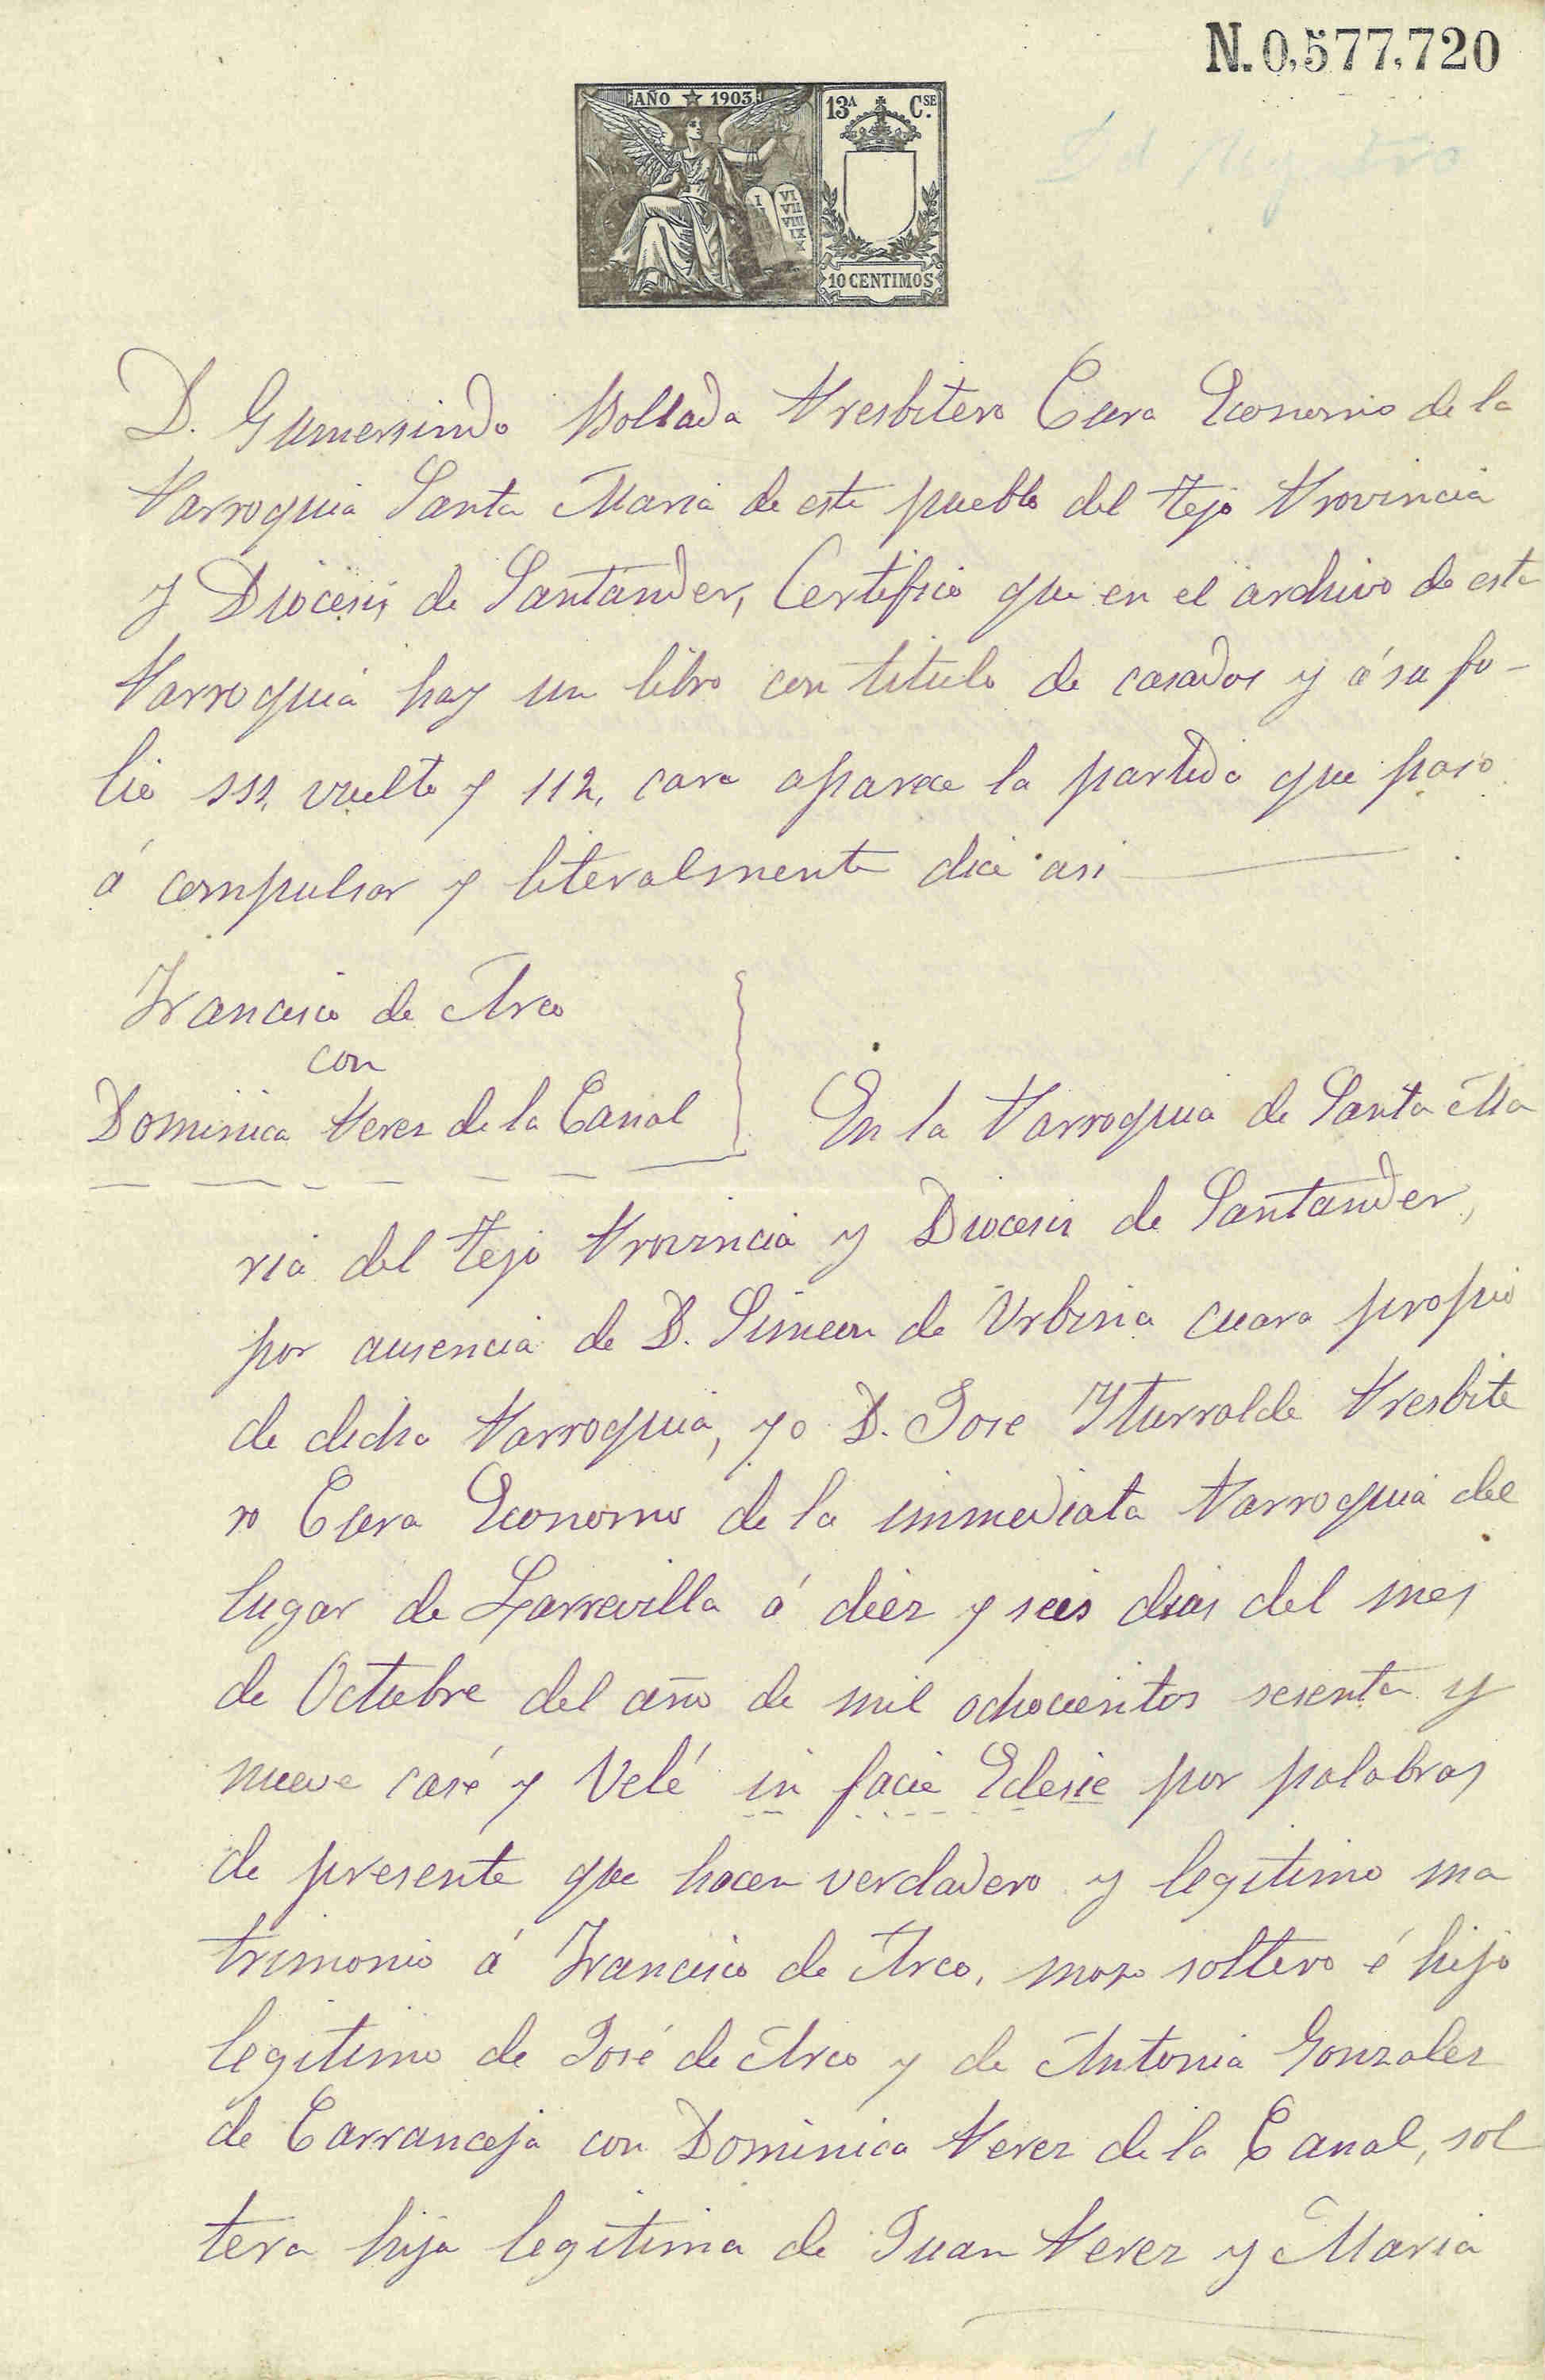 N.0,577,720
AÑO ★ 1903
13ᴬ Cˢᴱ.
I VI VII VIII IX X
10 CENTIMOS
D. Gumersindo Bollada Presbitero Cura Economo de la
Parroquia Santa Maria de este pueblo del Tejo Provincia
y Diocesis de Santander, Certifico que en el archivo de esta
Parroquia hay un libro con titulo de casados y á su fo-
lio 111, vuelto y 112, cara aparece la partida que paso
á compulsar y literalmente dice asi
Francisco de Arco
con
Dominica Perez de la Canal
En la Parroquia de Santa Ma
ria del Tejo Provincia y Diocesis de Santander,
por ausencia de D. Simeon de Urbina cuara propio
de dicha Parroquia, yo D. Jose Yturralde Presbite
ro Cura Economo de la inmediata Parroquia del
lugar de Larrevilla á diez y seis dias del mes
de Octubre del año de mil ochocientos sesenta y
nueve casé y Velé in facie Eclesie por palabras
de presente que hacen verdadero y legitimo ma
trimonio á Francisco de Arco, mozo soltero é hijo
legitimo de José de Arco y de Antonia Gonzalez
de Carranceja con Dominica Perez de la Canal, sol
tera hija legitima de Juan Perez y Maria